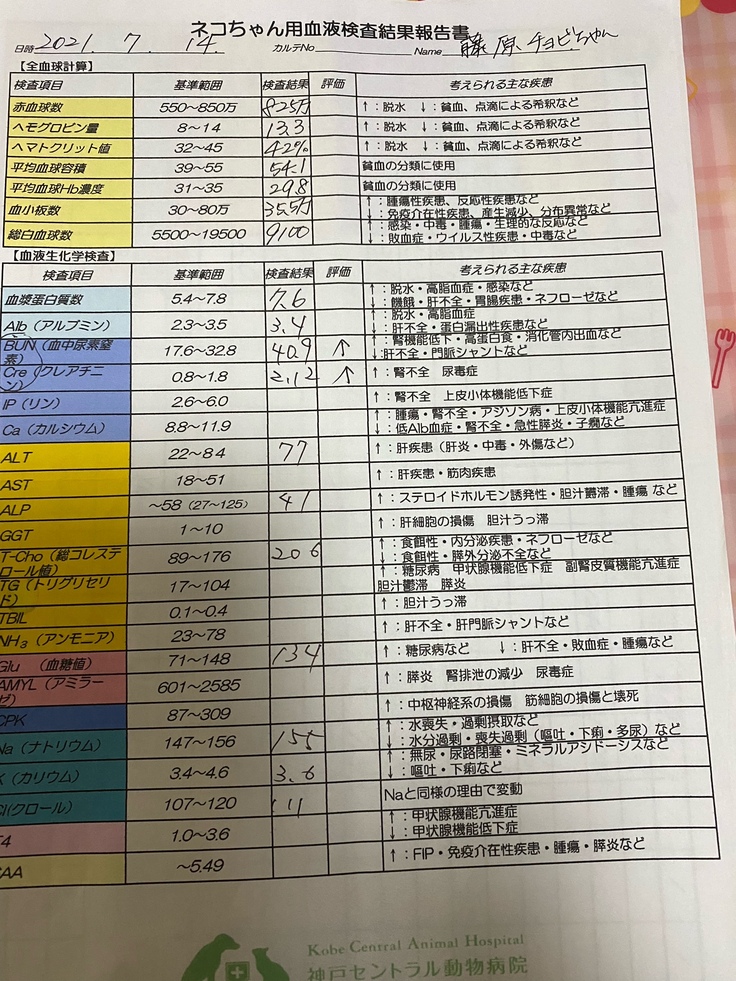 ネコちゃん用血液検査結果報告書
日時 2021. 7. 14. カルテNo Name 藤原 チョビちゃん
【全血球計算】
検査項目 基準範囲 検査結果 評価 考えられる主な疾患
赤血球数 550~850万 825万 ↑:脱水 ↓:貧血、点滴による希釈など
ヘモグロビン量 8~14 13.3 ↑:脱水 ↓:貧血、点滴による希釈など
ヘマトクリット値 32~45 42% ↑:脱水 ↓:貧血、点滴による希釈など
平均血球容積 39~55 54.1 貧血の分類に使用
平均血球Hb濃度 31~35 29.8 貧血の分類に使用
血小板数 30~80万 35.5万 ↑:腫瘍性疾患、反応性疾患など
↓:免疫介在性疾患、産生減少、分布異常など
総白血球数 5500~19500 9100 ↑:感染・中毒・腫瘍・生理的な反応など
↓:敗血症・ウイルス性疾患・中毒など
【血液生化学検査】
検査項目 基準範囲 検査結果 評価 考えられる主な疾患
血漿蛋白質数 5.4~7.8 7.6 ↑:脱水・高脂血症・感染など
↓:饑餓・肝不全・胃腸疾患・ネフローゼなど
Alb(アルブミン) 2.3~3.5 3.4 ↑:脱水・高脂血症
↓:肝不全・蛋白漏出性疾患など
BUN(血中尿素窒素) 17.6~32.8 40.9 ↑ ↑:腎機能低下・高蛋白食・消化管内出血など
↓:肝不全・門脈シャントなど
Cre(クレアチニン) 0.8~1.8 2.12 ↑ ↑:腎不全 尿毒症
IP(リン) 2.6~6.0 ↑:腎不全 上皮小体機能低下症
Ca(カルシウム) 8.8~11.9 ↑:腫瘍・腎不全・アジソン病・上皮小体機能亢進症
↓:低Alb血症・腎不全・急性膵炎・子癇など
ALT 22~84 77 ↑:肝疾患(肝炎・中毒・外傷など)
AST 18~51 ↑:肝疾患・筋肉疾患
ALP ~58(27~125) 41 ↑:ステロイドホルモン誘発性・胆汁鬱滞・腫瘍 など
GGT 1~10 ↑:肝細胞の損傷 胆汁うっ滞
T-Cho(総コレステロール値) 89~176 206 ↑:食餌性・内分泌疾患・ネフローゼなど
↓:食餌性・膵外分泌不全など
TG(トリグリセリド) 17~104 ↑:糖尿病 甲状腺機能低下症 副腎皮質機能亢進症
胆汁鬱滞 膵炎
TBIL 0.1~0.4 ↑:胆汁うっ滞
NH₃(アンモニア) 23~78 ↑:肝不全・肝門脈シャントなど
Glu (血糖値) 71~148 134 ↑:糖尿病など ↓:肝不全・敗血症・腫瘍など
AMYL(アミラーゼ) 601~2585 ↑:膵炎 腎排泄の減少 尿毒症
CPK 87~309 ↑:中枢神経系の損傷 筋細胞の損傷と壊死
Na(ナトリウム) 147~156 155 ↑:水喪失・過剰摂取など
↓:水分過剰・喪失過剰(嘔吐・下痢・多尿)など
K(カリウム) 3.4~4.6 3.6 ↑:無尿・尿路閉塞・ミネラルアシドーシスなど
↓:嘔吐・下痢など
Cl(クロール) 107~120 111 Naと同様の理由で変動
T4 1.0~3.6 ↑:甲状腺機能亢進症
↓:甲状腺機能低下症
SAA ~5.49 ↑:FIP・免疫介在性疾患・腫瘍・膵炎など
Kobe Central Animal Hospital
神戸セントラル動物病院